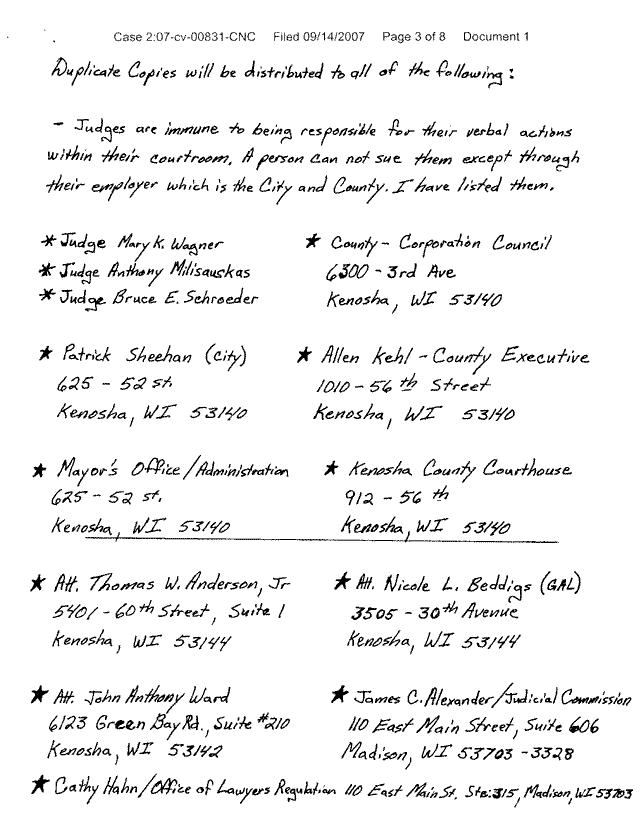 Case 2:07-cv-00831-CNC Filed 09/14/2007 Page 3 of 8 Document 1
Duplicate Copies will be distributed to all of the following:
- Judges are immune to being responsible for their verbal actions
within their courtroom. A person can not sue them except through
their employer which is the City and County. I have listed them.
* Judge Mary K. Wagner
* Judge Anthony Milisauskas
* Judge Bruce E. Schroeder
★ County - Corporation Council
6300 - 3rd Ave
Kenosha, WI 53140
★ Patrick Sheehan (city)
625 - 52 st.
Kenosha, WI 53140
★ Allen Kehl - County Executive
1010 - 56 th Street
Kenosha, WI 53140
★ Mayor's Office/Administration
625 - 52 st.
Kenosha, WI 53140
★ Kenosha County Courthouse
912 - 56 th
Kenosha, WI 53140
★ Att. Thomas W. Anderson, Jr
5401 - 60th Street, Suite 1
Kenosha, WI 53144
★ Att. Nicole L. Beddigs (GAL)
3505 - 30th Avenue
Kenosha, WI 53144
★ Att. John Anthony Ward
6123 Green Bay Rd., Suite #210
Kenosha, WI 53142
★ James C. Alexander/Judicial Commission
110 East Main Street, Suite 606
Madison, WI 53703-3328
★ Cathy Hahn/Office of Lawyers Regulation 110 East Main St. Ste: 315, Madison, WI 53703